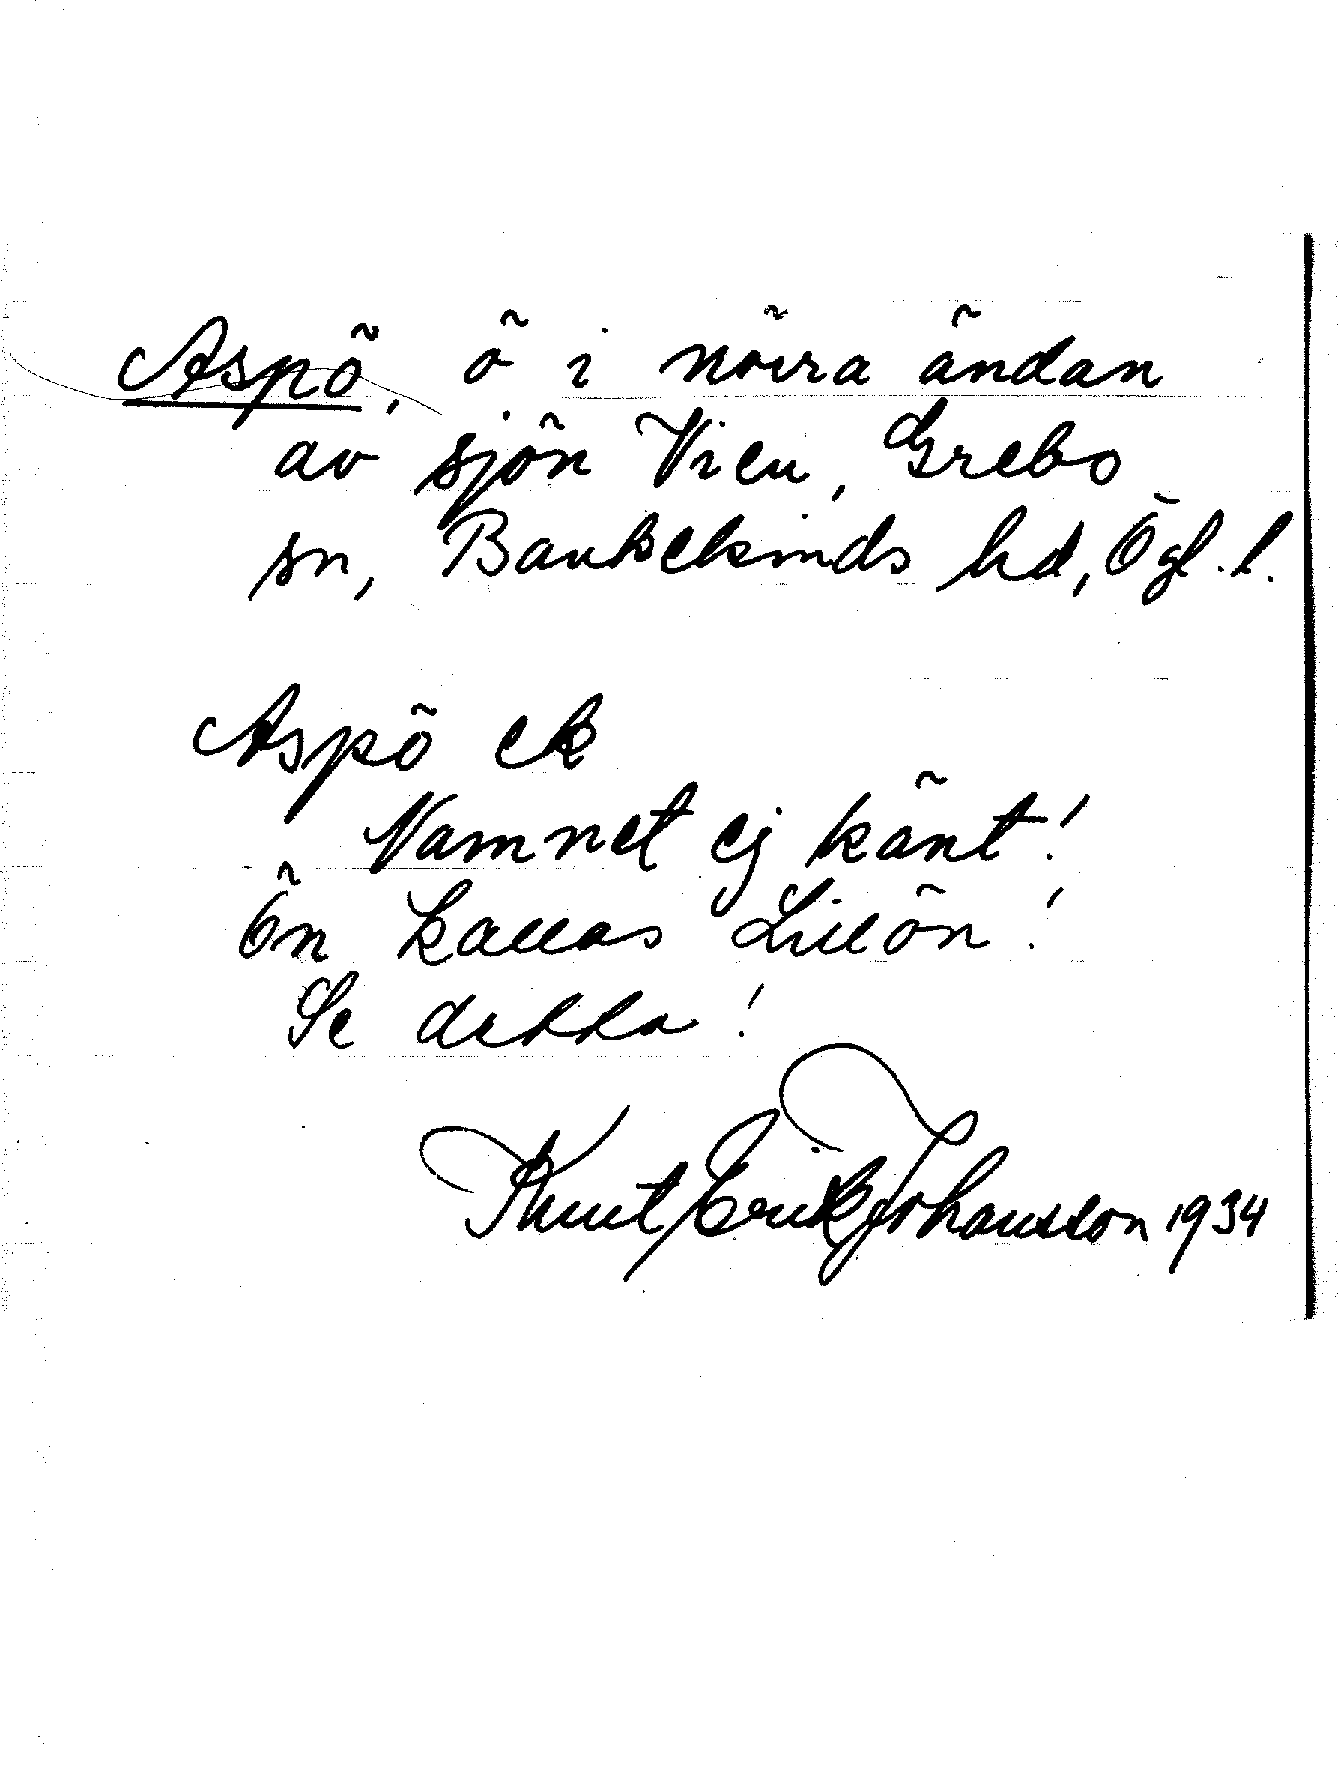 Aspö, ö i norra ändan
av sjön Vien, Grebo
sn, Bankekinds hd, Ögl. l.
Aspö ek
Namnet ej känt!
Ön kallas Lillön!
Se detta!
Knut Erik Johansson 1934